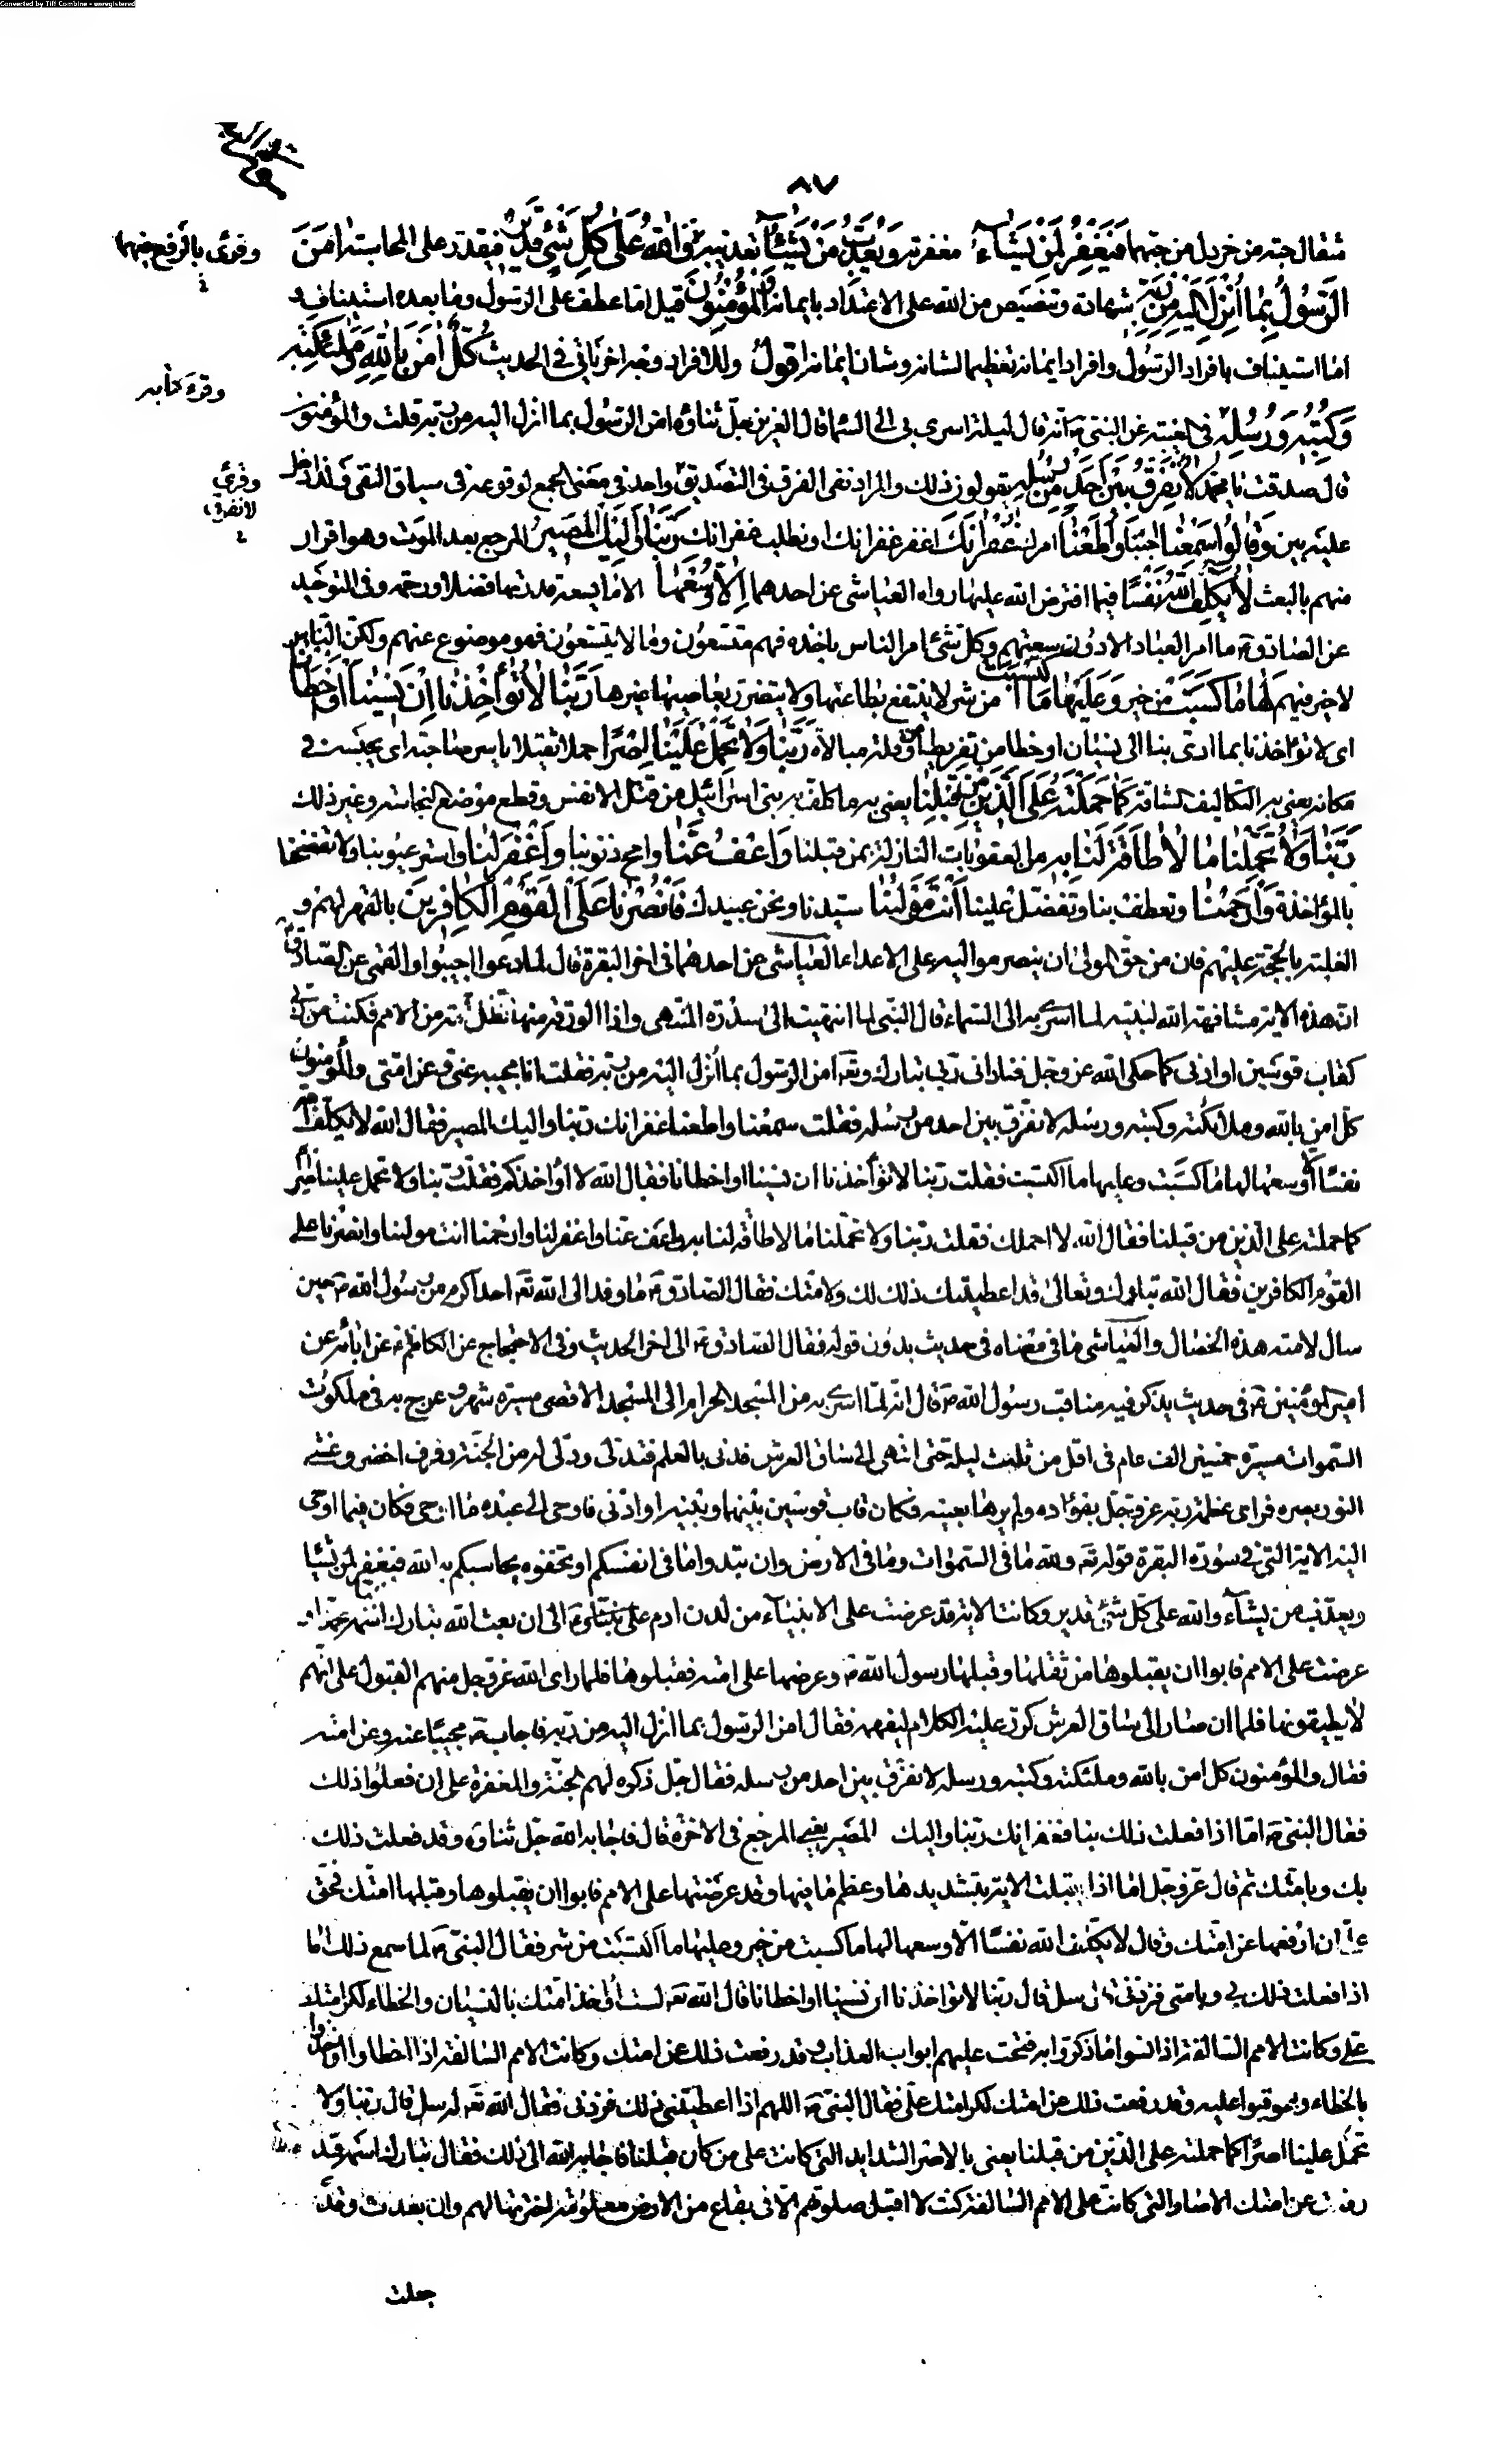 Converted by Tiff Combine - unregistered
٨٧
مثقال حبه من خردل من حبهما فَيَغْفِرُ لِمَنْ يَشَاءُ مغفرته وَيُعَذِّبُ مَنْ يَشَاءُ تعذيبه وَاللهُ عَلَىٰ كُلِّ شَيْءٍ قَدِيرٌ فيقدر على المحاسبة اٰمَنَ
وقرئ بالرفع فيهما
الرَّسُولُ بِمَا أُنْزِلَ إِلَيْهِ مِنْ رَبِّهِ شهادة وتنصيص من الله على الاعتداد بايمانه وَالْمُؤْمِنُونَ قيل اما عطف على الرسول وما بعده استيناف و
اما استيناف بافراد الرسول وافراد ايمانه تعظيما لشانه وشان ايمانه اقول وللافراد وجه اخر ياتي في الحديث كُلٌّ اٰمَنَ بِاللهِ وَمَلٰئِكَتِهِ
وقرء كتابه
وَكُتُبِهِ وَرُسُلِهِ في الغيبة عن النبي ص انه قال ليلة اسرى بي الى السما قال العزيز جل ثناؤه امن الرسول بما انزل اليه من ربه قلت والمؤمنون
قال صدقت يا محمد لَا نُفَرِّقُ بَيْنَ أَحَدٍ مِنْ رُسُلِهِ يقولون ذلك والمراد نفى الفرق في التصديق واحد في معنى الجمع لوقوعه في سياق النفى ولذا دخل
وقرئ لا يفرق
عليه بين وَقَالُوا سَمِعْنَا اجبنا وَأَطَعْنَا امرك غُفْرَانَكَ اغفر غفرانك او نطلب غفرانك رَبَّنَا وَإِلَيْكَ الْمَصِيرُ المرجع بعد الموت وهو اقرار
منهم بالبعث لَا يُكَلِّفُ اللهُ نَفْسًا فيما افترض الله عليها رواه العياشى عن احدهما إِلَّا وُسْعَهَا الا ما يسعه قدرتها فضلا ورحمة وفى التوحيد
عن الصادق ع ما امر العباد الا دون سعتهم وكل شئ امر الناس باخذه فهم متسعون وما لا يتسعون فهو موضوع عنهم ولكن الناس
لا خير فيهم لَهَا مَا كَسَبَتْ من خير وَعَلَيْهَا مَا اكْتَسَبَتْ من شر لا ينتفع بطاعتها ولا يتضرر بمعاصيها غيرها رَبَّنَا لَا تُؤَاخِذْنَا إِنْ نَسِينَا أَوْ أَخْطَأْنَا
اى لا تؤاخذنا بما ادى بنا الى نسيان او خطا من تفريط او قلة مبالاة رَبَّنَا وَلَا تَحْمِلْ عَلَيْنَا إِصْرًا حملا ثقيلا ياسر صاحبه اى يحبسه في
مكانه يعنى به التكاليف الشاقة كَمَا حَمَلْتَهُ عَلَى الَّذِينَ مِنْ قَبْلِنَا يعنى به ما كلف به بنى اسرائيل من قتل الانفس وقطع موضع النجاسه وغير ذلك
رَبَّنَا وَلَا تُحَمِّلْنَا مَا لَا طَاقَةَ لَنَا بِهِ من العقوبات النازلة بمن قبلنا وَاعْفُ عَنَّا وامح ذنوبنا وَاغْفِرْ لَنَا واستر عيوبنا ولا تفضحنا
بالمؤاخذة وَارْحَمْنَا وتعطف بنا وتفضل علينا أَنْتَ مَوْلٰنَا سيدنا ونحن عبيدك فَانْصُرْنَا عَلَى الْقَوْمِ الْكَافِرِينَ بالقهر لهم و
الغلبة بالحجة عليهم فان من حق المولى ان ينصر مواليه على الاعداء العياشى عن احدهما في اخر البقرة قال لما دعوا اجيبوا والقمى عن الصادق
ان هذه الاية مشافهة الله لنبيه لما اسرى به الى السماء قال النبى لما انتهيت الى سدرة المنتهى واذا الورقة منها تظل امة من الامم فكنت من ربى
كقاب قوسين او ادنى كما حكى الله عز وجل فنادانى ربى تبارك وتعا امن الرسول بما انزل اليه من ربه فقلت انا مجيبه عنى وعن امتى والمؤمنون
كل امن بالله وملائكته وكتبه ورسله لا نفرق بين احد من رسله فقلت سمعنا واطعنا غفرانك ربنا واليك المصير فقال الله لا يكلف الله
نفسا الا وسعها لها ما كسبت وعليها ما اكتسبت فقلت ربنا لا تؤاخذنا ان نسينا او اخطانا فقال الله لا أؤاخذكم فقلت ربنا ولا تحمل علينا اصرا
كما حملته على الذين من قبلنا فقال الله لا احملك فقلت ربنا ولا تحملنا ما لا طاقة لنا به واعف عنا واغفر لنا وارحمنا انت مولنا وانصرنا على
القوم الكافرين فقال الله تبارك وتعالى قد اعطيتك ذلك لك ولامتك فقال الصادق ع ما وفد الى الله تعا احد اكرم من رسول الله ص حين
سال لامته هذه الخصال والعياشى ما في معناه في حديث بدون قوله فقال الصادق ع الى اخر الحديث وفى الاحتجاج عن الكاظم ع عن ابائه عن
امير المؤمنين ع في حديث يذكر فيه مناقب رسول الله ص قال انه لما اسرى به من المسجد الحرام الى المسجد الاقصى مسيرة شهر وعرج به في ملكوت
السموات مسيرة خمسين الف عام في اقل من ثلث ليلة حتى انتهى الى ساق العرش فدنى بالعلم فتدلى ودلى له من الجنة رفرف اخضر وغشى
النور بصره فراى عظمة ربه عز وجل بفؤاده ولم يرها بعينه فكان قاب قوسين بينها وبينه او ادنى فاوحى الى عبده ما اوحى وكان فيما اوحى
اليه الاية التى في سورة البقرة قوله تعا ولله ما في السموات وما في الارض وان تبدوا ما في انفسكم او تخفوه يحاسبكم به الله فيغفر لمن يشا
ويعذب من يشآء والله على كل شئ قدير وكانت الاية قد عرضت على الانبيآء من لدن ادم على الى ان بعث الله تبارك اسمه محمدا و
عرضت على الامم فابوا ان يقبلوها من ثقلها وقبلها رسول الله ص وعرضها على امته فقبلوها فلما راى الله عز وجل منهم القبول على انهم
لا يطيقونها فلما ان صار الى ساق العرش كرر عليه الكلام ليفهمه فقال امن الرسول بما انزل اليه من ربه فاجاب ص مجيبا عنه وعن امته
فقال والمؤمنون كل امن بالله وملئكته وكتبه ورسله لا نفرق بين احد من رسله فقال جل ذكره لهم الجنة والمغفرة على ان فعلوا ذلك
فقال النبى ص اما اذا فعلت ذلك بنا فغفرانك ربنا واليك المصير يعنى المرجع في الاخرة قال فاجابه الله جل ثناؤه وقد فعلت ذلك
بك وبامتك ثم قال عز وجل اما اذا قبلت الاية بتشديدها وعظم ما فيها وقد عرضتها على الامم فابوا ان يقبلوها وقبلها امتك فحق
على ان ارفعها عن امتك وقال لا يكلف الله نفسا الا وسعها لها ما كسبت من خير وعليها ما اكتسبت من شر فقال النبى ص لما سمع ذلك اما
اذا فعلت ذلك بى وبامتى فزدنى قال سل قال ربنا لا تؤاخذنا ان نسينا او اخطانا قال الله تعا لست أؤاخذ امتك بالنسيان والخطاء لكرامتك
على وكانت الامم السالفة اذا نسوا ما ذكروا به فتحت عليهم ابواب العذاب وقد رفعت ذلك عن امتك وكانت الامم السالفة اذا اخطاوا اخذوا
بالخطاء وعوقبوا عليه وقد رفعت ذلك عن امتك لكرامتك على فقال النبى ص اللهم اذا اعطيتنى ذلك فزدنى فقال الله تعا له سل قال ربنا ولا
تحمل علينا اصرا كما حملته على الذين من قبلنا يعنى بالاصر الشدايد التى كانت على من كان قبلنا فاجابه الله الى ذلك فقال تبارك اسمه قد
رفعت عن امتك الاصار التى كانت على الامم السالفة كنت لا اقبل صلوتهم الا في بقاع من الارض معلومة اخترتها لهم وان بعدت وقد
جعلت